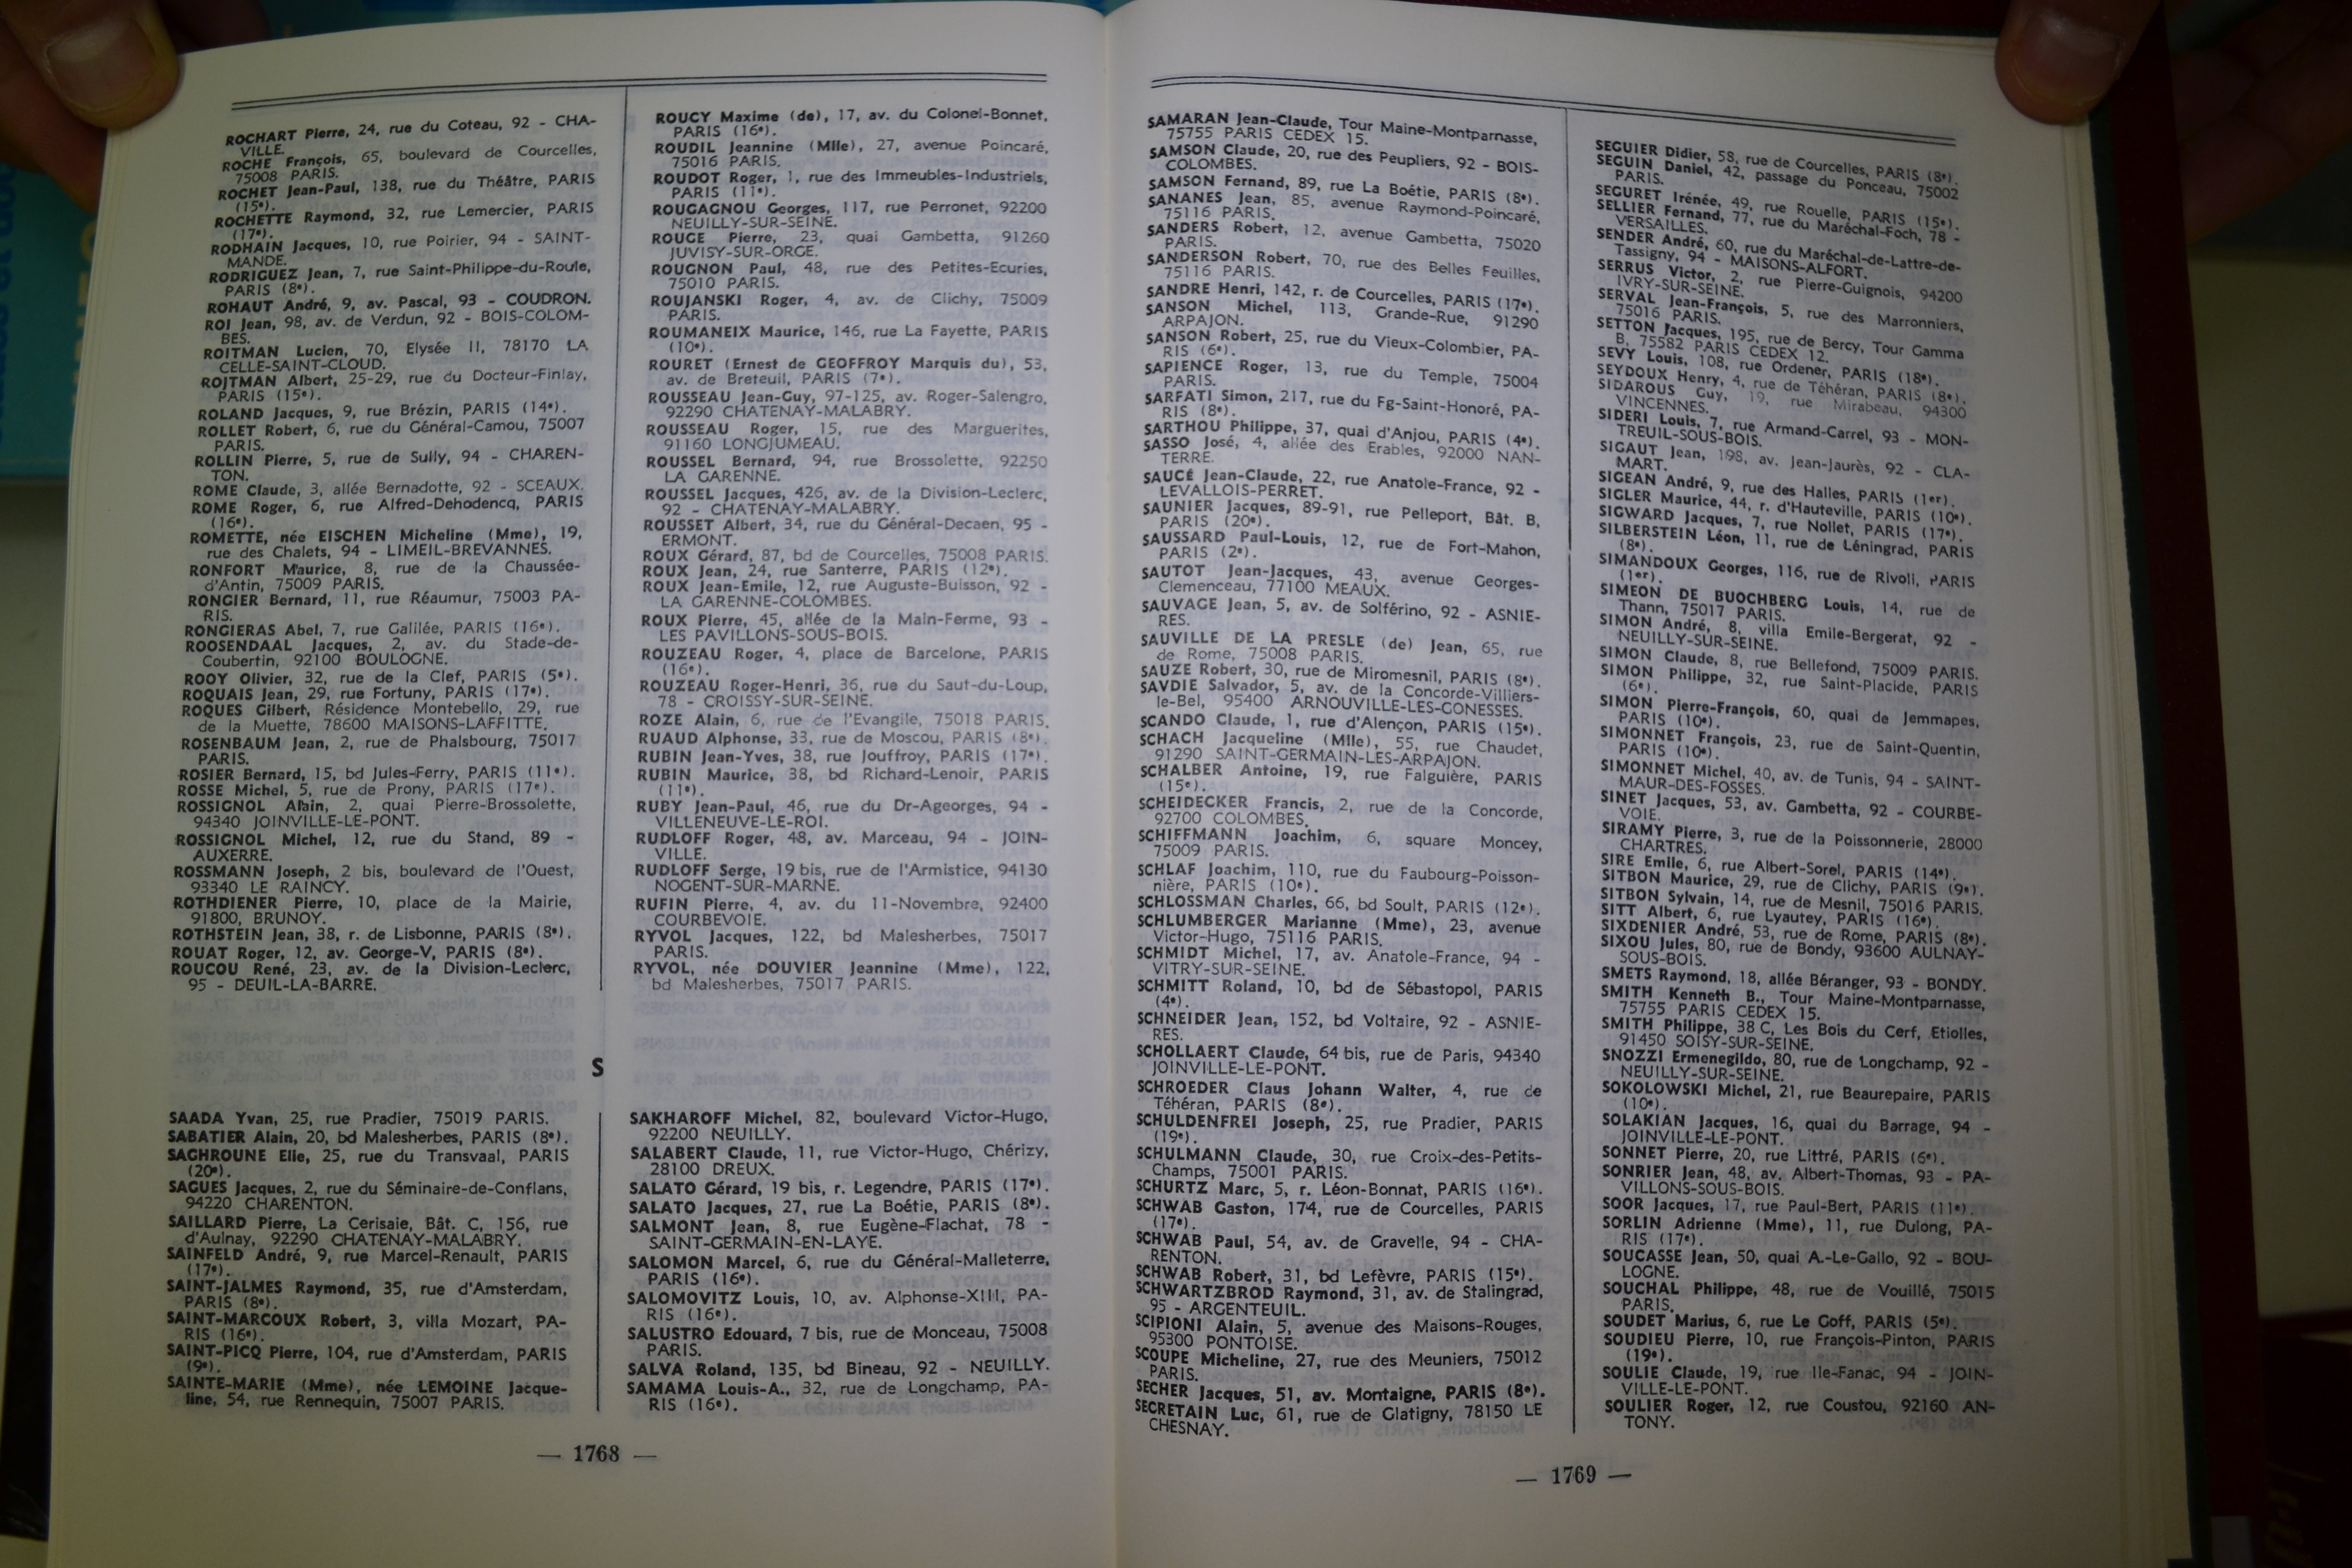 ROCHART Pierre, 24, rue du Coteau, 92 - CHA-
VILLE.
ROCHE François, 65, boulevard de Courcelles,
75008 PARIS.
ROCHET Jean-Paul, 138, rue du Théâtre, PARIS
(15e).
ROCHETTE Raymond, 32, rue Lemercier, PARIS
(17e).
RODHAIN Jacques, 10, rue Poirier, 94 - SAINT-
MANDE.
RODRIGUEZ Jean, 7, rue Saint-Philippe-du-Roule,
PARIS (8e).
ROHAUT André, 9, av. Pascal, 93 - COUDRON.
ROI Jean, 98, av. de Verdun, 92 - BOIS-COLOM-
BES.
ROITMAN Lucien, 70, Elysée II, 78170 LA
CELLE-SAINT-CLOUD.
ROJTMAN Albert, 25-29, rue du Docteur-Finlay,
PARIS (15e).
ROLAND Jacques, 9, rue Brézin, PARIS (14e).
ROLLET Robert, 6, rue du Général-Camou, 75007
PARIS.
ROLLIN Pierre, 5, rue de Sully, 94 - CHAREN-
TON.
ROME Claude, 3, allée Bernadotte, 92 - SCEAUX.
ROME Roger, 6, rue Alfred-Dehodencq, PARIS
(16e).
ROMETTE, née EISCHEN Micheline (Mme), 19,
rue des Chalets, 94 - LIMEIL-BREVANNES.
RONFORT Maurice, 8, rue de la Chaussée-
d'Antin, 75009 PARIS.
RONGIER Bernard, 11, rue Réaumur, 75003 PA-
RIS.
RONGIERAS Abel, 7, rue Galilée, PARIS (16e).
ROOSENDAAL Jacques, 2, av. du Stade-de-
Coubertin, 92100 BOULOGNE.
ROOY Olivier, 32, rue de la Clef, PARIS (5e).
ROQUAIS Jean, 29, rue Fortuny, PARIS (17e).
ROQUES Gilbert, Résidence Montebello, 29, rue
de la Muette, 78600 MAISONS-LAFFITTE.
ROSENBAUM Jean, 2, rue de Phalsbourg, 75017
PARIS.
ROSIER Bernard, 15, bd Jules-Ferry, PARIS (11e).
ROSSE Michel, 5, rue de Prony, PARIS (17e).
ROSSIGNOL Alain, 2, quai Pierre-Brossolette,
94340 JOINVILLE-LE-PONT.
ROSSIGNOL Michel, 12, rue du Stand, 89 -
AUXERRE.
ROSSMANN Joseph, 2 bis, boulevard de l'Ouest,
93340 LE RAINCY.
ROTHDIENER Pierre, 10, place de la Mairie,
91800, BRUNOY.
ROTHSTEIN Jean, 38, r. de Lisbonne, PARIS (8e).
ROUAT Roger, 12, av. George-V, PARIS (8e).
ROUCOU René, 23, av. de la Division-Leclerc,
95 - DEUIL-LA-BARRE.
ROUCY Maxime (de), 17, av. du Colonel-Bonnet,
PARIS (16e).
ROUDIL Jeannine (Mlle), 27, avenue Poincaré,
75016 PARIS.
ROUDOT Roger, 1, rue des Immeubles-Industriels,
PARIS (11e).
ROUGAGNOU Georges, 117, rue Perronet, 92200
NEUILLY-SUR-SEINE.
ROUGE Pierre, 23, quai Gambetta, 91260
JUVISY-SUR-ORGE.
ROUGNON Paul, 48, rue des Petites-Ecuries,
75010 PARIS.
ROUJANSKI Roger, 4, av. de Clichy, 75009
PARIS.
ROUMANEIX Maurice, 146, rue La Fayette, PARIS
(10e).
ROURET (Ernest de GEOFFROY Marquis du), 53,
av. de Breteuil, PARIS (7e).
ROUSSEAU Jean-Guy, 97-125, av. Roger-Salengro,
92290 CHATENAY-MALABRY.
ROUSSEAU Roger, 15, rue des Marguerites,
91160 LONGJUMEAU.
ROUSSEL Bernard, 94, rue Brossolette, 92250
LA GARENNE.
ROUSSEL Jacques, 426, av. de la Division-Leclerc,
92 - CHATENAY-MALABRY.
ROUSSET Albert, 34, rue du Général-Decaen, 95 -
ERMONT.
ROUX Gérard, 87, bd de Courcelles, 75008 PARIS.
ROUX Jean, 24, rue Santerre, PARIS (12e).
ROUX Jean-Emile, 12, rue Auguste-Buisson, 92 -
LA GARENNE-COLOMBES.
ROUX Pierre, 45, allée de la Main-Ferme, 93 -
LES PAVILLONS-SOUS-BOIS.
ROUZEAU Roger, 4, place de Barcelone, PARIS
(16e).
ROUZEAU Roger-Henri, 36, rue du Saut-du-Loup,
78 - CROISSY-SUR-SEINE.
ROZE Alain, 6, rue de l'Evangile, 75018 PARIS.
RUAUD Alphonse, 33, rue de Moscou, PARIS (8e).
RUBIN Jean-Yves, 38, rue Jouffroy, PARIS (17e).
RUBIN Maurice, 38, bd Richard-Lenoir, PARIS
(11e).
RUBY Jean-Paul, 46, rue du Dr-Ageorges, 94 -
VILLENEUVE-LE-ROI.
RUDLOFF Roger, 48, av. Marceau, 94 - JOIN-
VILLE.
RUDLOFF Serge, 19 bis, rue de l'Armistice, 94130
NOGENT-SUR-MARNE.
RUFIN Pierre, 4, av. du 11-Novembre, 92400
COURBEVOIE.
RYVOL Jacques, 122, bd Malesherbes, 75017
PARIS.
RYVOL, née DOUVIER Jeannine (Mme), 122,
bd Malesherbes, 75017 PARIS.
S
SAADA Yvan, 25, rue Pradier, 75019 PARIS.
SABATIER Alain, 20, bd Malesherbes, PARIS (8e).
SAGHROUNE Elie, 25, rue du Transvaal, PARIS
(20e).
SAGUES Jacques, 2, rue du Séminaire-de-Conflans,
94220 CHARENTON.
SAILLARD Pierre, La Cerisaie, Bât. C, 156, rue
d'Aulnay, 92290 CHATENAY-MALABRY.
SAINFELD André, 9, rue Marcel-Renault, PARIS
(17e).
SAINT-JALMES Raymond, 35, rue d'Amsterdam,
PARIS (8e).
SAINT-MARCOUX Robert, 3, villa Mozart, PA-
RIS (16e).
SAINT-PICQ Pierre, 104, rue d'Amsterdam, PARIS
(9e).
SAINTE-MARIE (Mme), née LEMOINE Jacque-
line, 54, rue Rennequin, 75007 PARIS.
SAKHAROFF Michel, 82, boulevard Victor-Hugo,
92200 NEUILLY.
SALABERT Claude, 11, rue Victor-Hugo, Chérizy,
28100 DREUX.
SALATO Gérard, 19 bis, r. Legendre, PARIS (17e).
SALATO Jacques, 27, rue La Boétie, PARIS (8e).
SALMONT Jean, 8, rue Eugène-Flachat, 78 -
SAINT-GERMAIN-EN-LAYE.
SALOMON Marcel, 6, rue du Général-Malleterre,
PARIS (16e).
SALOMOVITZ Louis, 10, av. Alphonse-XIII, PA-
RIS (16e).
SALUSTRO Edouard, 7 bis, rue de Monceau, 75008
PARIS.
SALVA Roland, 135, bd Bineau, 92 - NEUILLY.
SAMAMA Louis-A., 32, rue de Longchamp, PA-
RIS (16e).
— 1768 —
SAMARAN Jean-Claude, Tour Maine-Montparnasse,
75755 PARIS CEDEX 15.
SAMSON Claude, 20, rue des Peupliers, 92 - BOIS-
COLOMBES.
SAMSON Fernand, 89, rue La Boétie, PARIS (8e).
SANANES Jean, 85, avenue Raymond-Poincaré,
75116 PARIS.
SANDERS Robert, 12, avenue Gambetta, 75020
PARIS.
SANDERSON Robert, 70, rue des Belles Feuilles,
75116 PARIS.
SANDRE Henri, 142, r. de Courcelles, PARIS (17e).
SANSON Michel, 113, Grande-Rue, 91290
ARPAJON.
SANSON Robert, 25, rue du Vieux-Colombier, PA-
RIS (6e).
SAPIENCE Roger, 13, rue du Temple, 75004
PARIS.
SARFATI Simon, 217, rue du Fg-Saint-Honoré, PA-
RIS (8e).
SARTHOU Philippe, 37, quai d'Anjou, PARIS (4e).
SASSO José, 4, allée des Erables, 92000 NAN-
TERRE.
SAUCÉ Jean-Claude, 22, rue Anatole-France, 92 -
LEVALLOIS-PERRET.
SAUNIER Jacques, 89-91, rue Pelleport, Bât. B,
PARIS (20e).
SAUSSARD Paul-Louis, 12, rue de Fort-Mahon,
PARIS (2e).
SAUTOT Jean-Jacques, 43, avenue Georges-
Clemenceau, 77100 MEAUX.
SAUVAGE Jean, 5, av. de Solférino, 92 - ASNIE-
RES.
SAUVILLE DE LA PRESLE (de) Jean, 65, rue
de Rome, 75008 PARIS.
SAUZE Robert, 30, rue de Miromesnil, PARIS (8e).
SAVDIE Salvador, 5, av. de la Concorde-Villiers-
le-Bel, 95400 ARNOUVILLE-LES-GONESSES.
SCANDO Claude, 1, rue d'Alençon, PARIS (15e).
SCHACH Jacqueline (Mlle), 55, rue Chaudet,
91290 SAINT-GERMAIN-LES-ARPAJON.
SCHALBER Antoine, 19, rue Falguière, PARIS
(15e).
SCHEIDECKER Francis, 2, rue de la Concorde,
92700 COLOMBES.
SCHIFFMANN Joachim, 6, square Moncey,
75009 PARIS.
SCHLAF Joachim, 110, rue du Faubourg-Poisson-
nière, PARIS (10e).
SCHLOSSMAN Charles, 66, bd Soult, PARIS (12e).
SCHLUMBERGER Marianne (Mme), 23, avenue
Victor-Hugo, 75116 PARIS.
SCHMIDT Michel, 17, av. Anatole-France, 94 -
VITRY-SUR-SEINE.
SCHMITT Roland, 10, bd de Sébastopol, PARIS
(4e).
SCHNEIDER Jean, 152, bd Voltaire, 92 - ASNIE-
RES.
SCHOLLAERT Claude, 64 bis, rue de Paris, 94340
JOINVILLE-LE-PONT.
SCHROEDER Claus Johann Walter, 4, rue de
Téhéran, PARIS (8e).
SCHULDENFREI Joseph, 25, rue Pradier, PARIS
(19e).
SCHULMANN Claude, 30, rue Croix-des-Petits-
Champs, 75001 PARIS.
SCHURTZ Marc, 5, r. Léon-Bonnat, PARIS (16e).
SCHWAB Gaston, 174, rue de Courcelles, PARIS
(17e).
SCHWAB Paul, 54, av. de Gravelle, 94 - CHA-
RENTON.
SCHWAB Robert, 31, bd Lefèvre, PARIS (15e).
SCHWARTZBROD Raymond, 31, av. de Stalingrad,
95 - ARGENTEUIL.
SCIPIONI Alain, 5, avenue des Maisons-Rouges,
95300 PONTOISE.
SCOUPE Micheline, 27, rue des Meuniers, 75012
PARIS.
SECHER Jacques, 51, av. Montaigne, PARIS (8e).
SECRETAIN Luc, 61, rue de Glatigny, 78150 LE
CHESNAY.
SEGUIER Didier, 58, rue de Courcelles, PARIS (8e).
SEGUIN Daniel, 42, passage du Ponceau, 75002
PARIS.
SEGURET Irénée, 49, rue Rouelle, PARIS (15e).
SELLIER Fernand, 77, rue du Maréchal-Foch, 78 -
VERSAILLES.
SENDER André, 60, rue du Maréchal-de-Lattre-de-
Tassigny, 94 - MAISONS-ALFORT.
SERRUS Victor, 2, rue Pierre-Guignois, 94200
IVRY-SUR-SEINE.
SERVAL Jean-François, 5, rue des Marronniers,
75016 PARIS.
SETTON Jacques, 195, rue de Bercy, Tour Gamma
B, 75582 PARIS CEDEX 12.
SEVY Louis, 108, rue Ordener, PARIS (18e).
SEYDOUX Henry, 4, rue de Téhéran, PARIS (8e).
SIDAROUS Guy, 19, rue Mirabeau, 94300
VINCENNES.
SIDERI Louis, 7, rue Armand-Carrel, 93 - MON-
TREUIL-SOUS-BOIS.
SIGAUT Jean, 198, av. Jean-Jaurès, 92 - CLA-
MART.
SIGEAN André, 9, rue des Halles, PARIS (1er).
SIGLER Maurice, 44, r. d'Hauteville, PARIS (10e).
SIGWARD Jacques, 7, rue Nollet, PARIS (17e).
SILBERSTEIN Léon, 11, rue de Léningrad, PARIS
(8e).
SIMANDOUX Georges, 116, rue de Rivoli, PARIS
(1er).
SIMEON DE BUOCHBERG Louis, 14, rue de
Thann, 75017 PARIS.
SIMON André, 8, villa Emile-Bergerat, 92 -
NEUILLY-SUR-SEINE.
SIMON Claude, 8, rue Bellefond, 75009 PARIS.
SIMON Philippe, 32, rue Saint-Placide, PARIS
(6e).
SIMON Pierre-François, 60, quai de Jemmapes,
PARIS (10e).
SIMONNET François, 23, rue de Saint-Quentin,
PARIS (10e).
SIMONNET Michel, 40, av. de Tunis, 94 - SAINT-
MAUR-DES-FOSSES.
SINET Jacques, 53, av. Gambetta, 92 - COURBE-
VOIE.
SIRAMY Pierre, 3, rue de la Poissonnerie, 28000
CHARTRES.
SIRE Emile, 6, rue Albert-Sorel, PARIS (14e).
SITBON Maurice, 29, rue de Clichy, PARIS (9e).
SITBON Sylvain, 14, rue de Mesnil, 75016 PARIS.
SITT Albert, 6, rue Lyautey, PARIS (16e).
SIXDENIER André, 53, rue de Rome, PARIS (8e).
SIXOU Jules, 80, rue de Bondy, 93600 AULNAY-
SOUS-BOIS.
SMETS Raymond, 18, allée Béranger, 93 - BONDY.
SMITH Kenneth B., Tour Maine-Montparnasse,
75755 PARIS CEDEX 15.
SMITH Philippe, 38 C, Les Bois du Cerf, Etiolles,
91450 SOISY-SUR-SEINE.
SNOZZI Ermenegildo, 80, rue de Longchamp, 92 -
NEUILLY-SUR-SEINE.
SOKOLOWSKI Michel, 21, rue Beaurepaire, PARIS
(10e).
SOLAKIAN Jacques, 16, quai du Barrage, 94 -
JOINVILLE-LE-PONT.
SONNET Pierre, 20, rue Littré, PARIS (6e).
SONRIER Jean, 48, av. Albert-Thomas, 93 - PA-
VILLONS-SOUS-BOIS.
SOOR Jacques, 17, rue Paul-Bert, PARIS (11e).
SORLIN Adrienne (Mme), 11, rue Dulong, PA-
RIS (17e).
SOUCASSE Jean, 50, quai A.-Le-Gallo, 92 - BOU-
LOGNE.
SOUCHAL Philippe, 48, rue de Vouillé, 75015
PARIS.
SOUDET Marius, 6, rue Le Goff, PARIS (5e).
SOUDIEU Pierre, 10, rue François-Pinton, PARIS
(19e).
SOULIE Claude, 19, rue Ile-Fanac, 94 - JOIN-
VILLE-LE-PONT.
SOULIER Roger, 12, rue Coustou, 92160 AN-
TONY.
— 1769 —